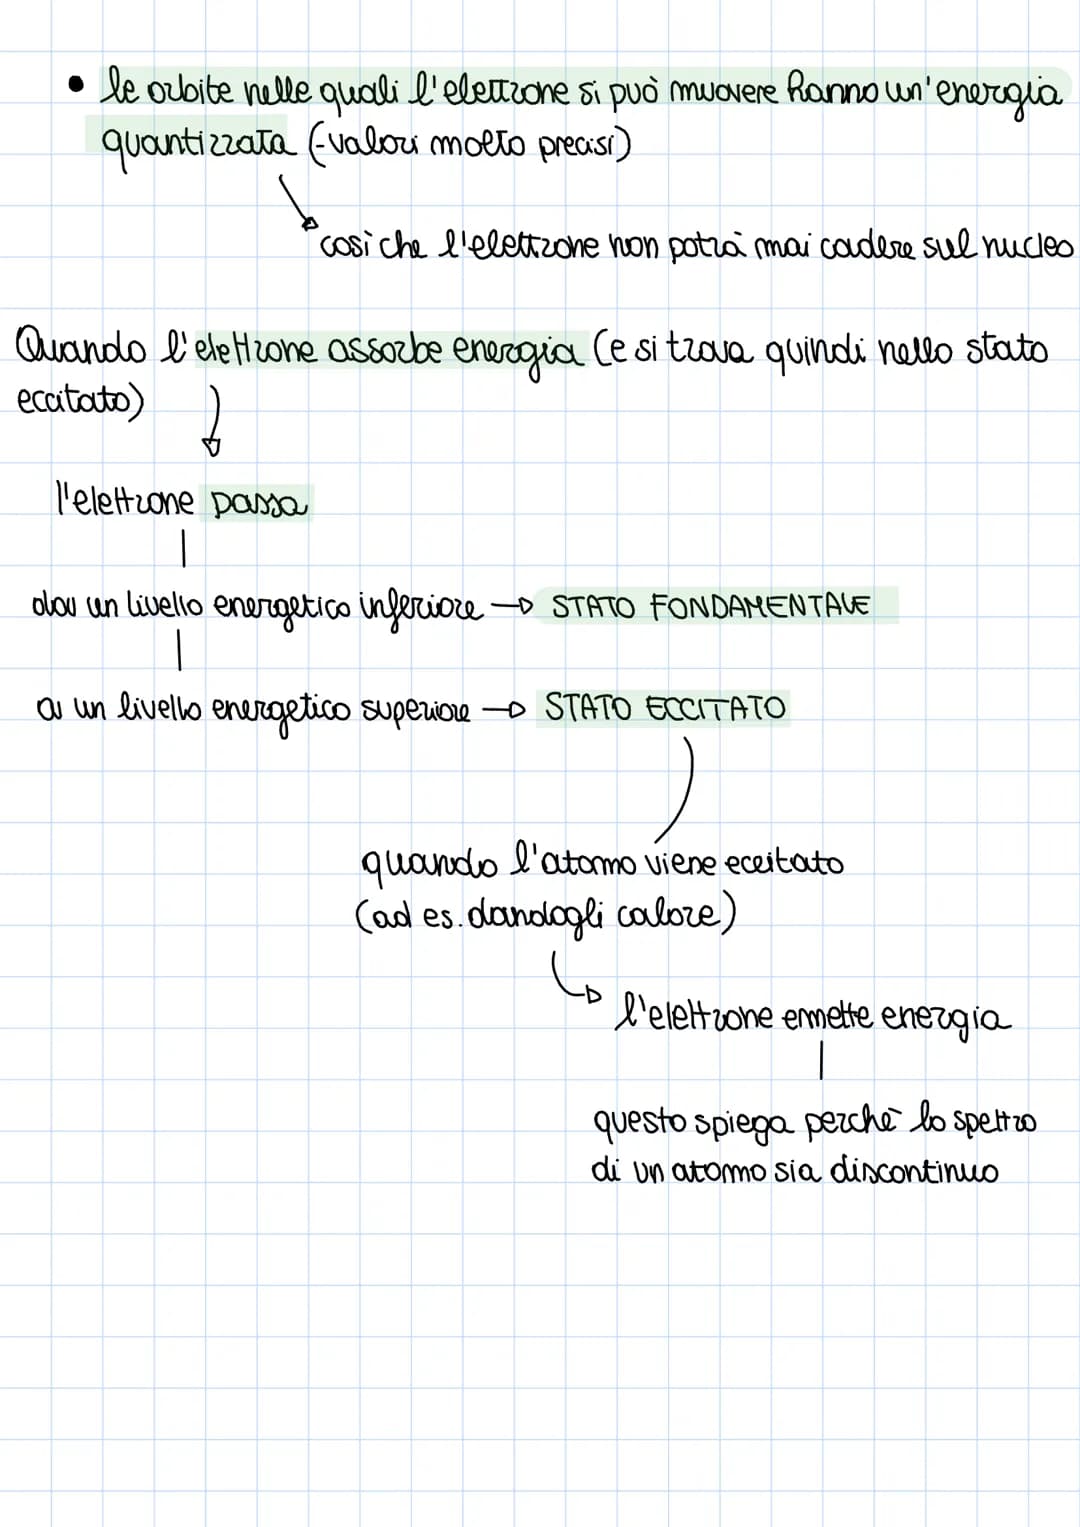 • le orbite nelle quali l'elettrone si può muovere hanno un'energia
quantizzata (-valori molto precisi)
così che l'elettrone non potrà mai cadere sul nucleo
Quando l'elettrone assorbe energia (e si trova quindi nello stato
eccitato)
l'elettrone passa
da un livello energetico inferiore → STATO FONDAMENTALE
a un livello energetico superiore → STATO ECCITATO
quando l'atomo viene eccitato
(ad es. dandogli calore)
l'elettrone emette energia
questo spiega perchè lo spettro
di un atomo sia discontinuo